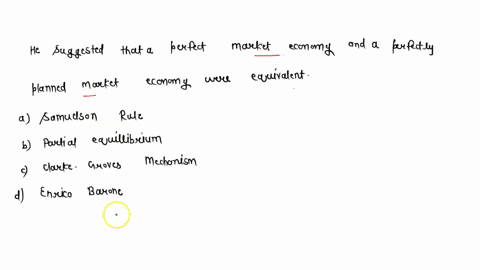 He suggested that a perfect market economy and a perfectly
planned market economy were equivalent.
a) Samuelson Rule
b) Partial equillibrium
c) Clarke. Groves Mechonism
d) Enrico Barone